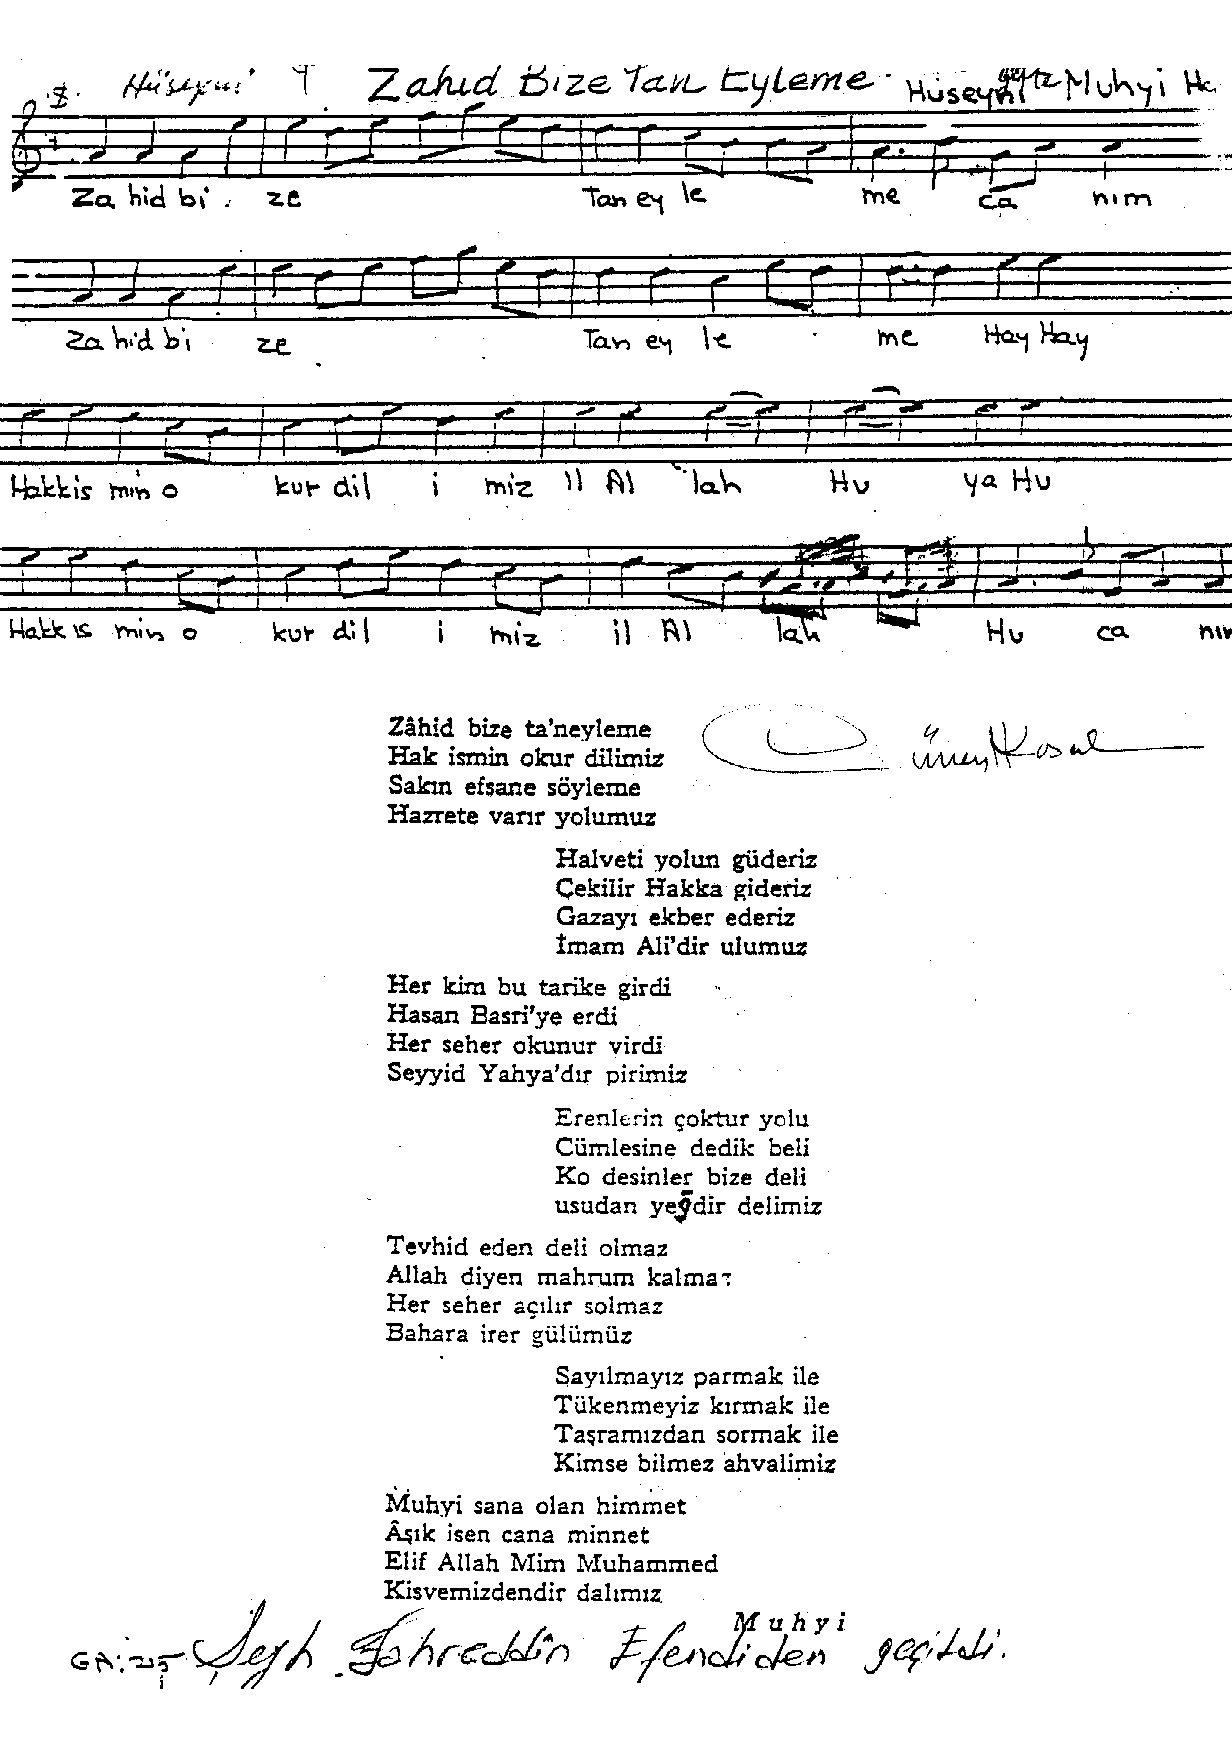 Hüseyni Zahid Bize Tan Eyleme Hüseyni Muhyi
Za hid bi ze Tan ey le me ca nım
Za hid bi ze Tan ey le me Hay Hay
Hakkis min o kur dil i miz il Al lah Hu ya Hu
Hakkıs min o kur dil i miz il Al lah Hu ca
Zâhid bize ta'neyleme
Hak ismin okur dilimiz
Sakın efsane söyleme
Hazrete varır yolumuz
Halveti yolun güderiz
Çekilir Hakka gideriz
Gazayı ekber ederiz
İmam Ali'dir ulumuz
Her kim bu tarike girdi
Hasan Basri'ye erdi
Her seher okunur virdi
Seyyid Yahya'dır pirimiz
Erenlerin çoktur yolu
Cümlesine dedik beli
Ko desinler bize deli
usudan yeğdir delimiz
Tevhid eden deli olmaz
Allah diyen mahrum kalmaz
Her seher açılır solmaz
Bahara irer gülümüz
Sayılmayız parmak ile
Tükenmeyiz kırmak ile
Taşramızdan sormak ile
Kimse bilmez ahvalimiz
Muhyi sana olan himmet
Âşık isen cana minnet
Elif Allah Mim Muhammed
Kisvemizdendir dalımız
Muhyi
Şeyh Fahreddin Efendiden geçildi.